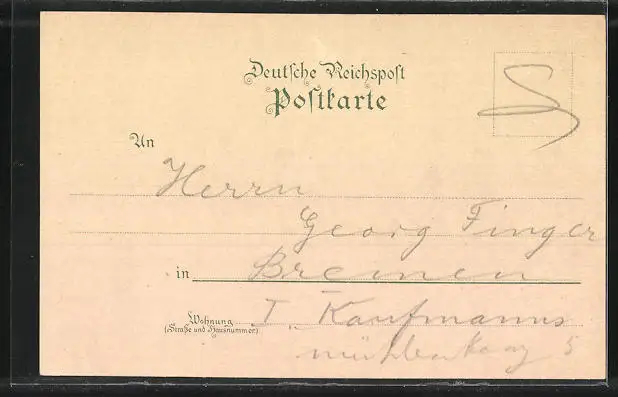 Deutsche Reichspost
Postkarte
An
Herrn
Georg Finger
in Bremen
Wohnung I, Kaufmanns
(Straße und Hausnummer)
5